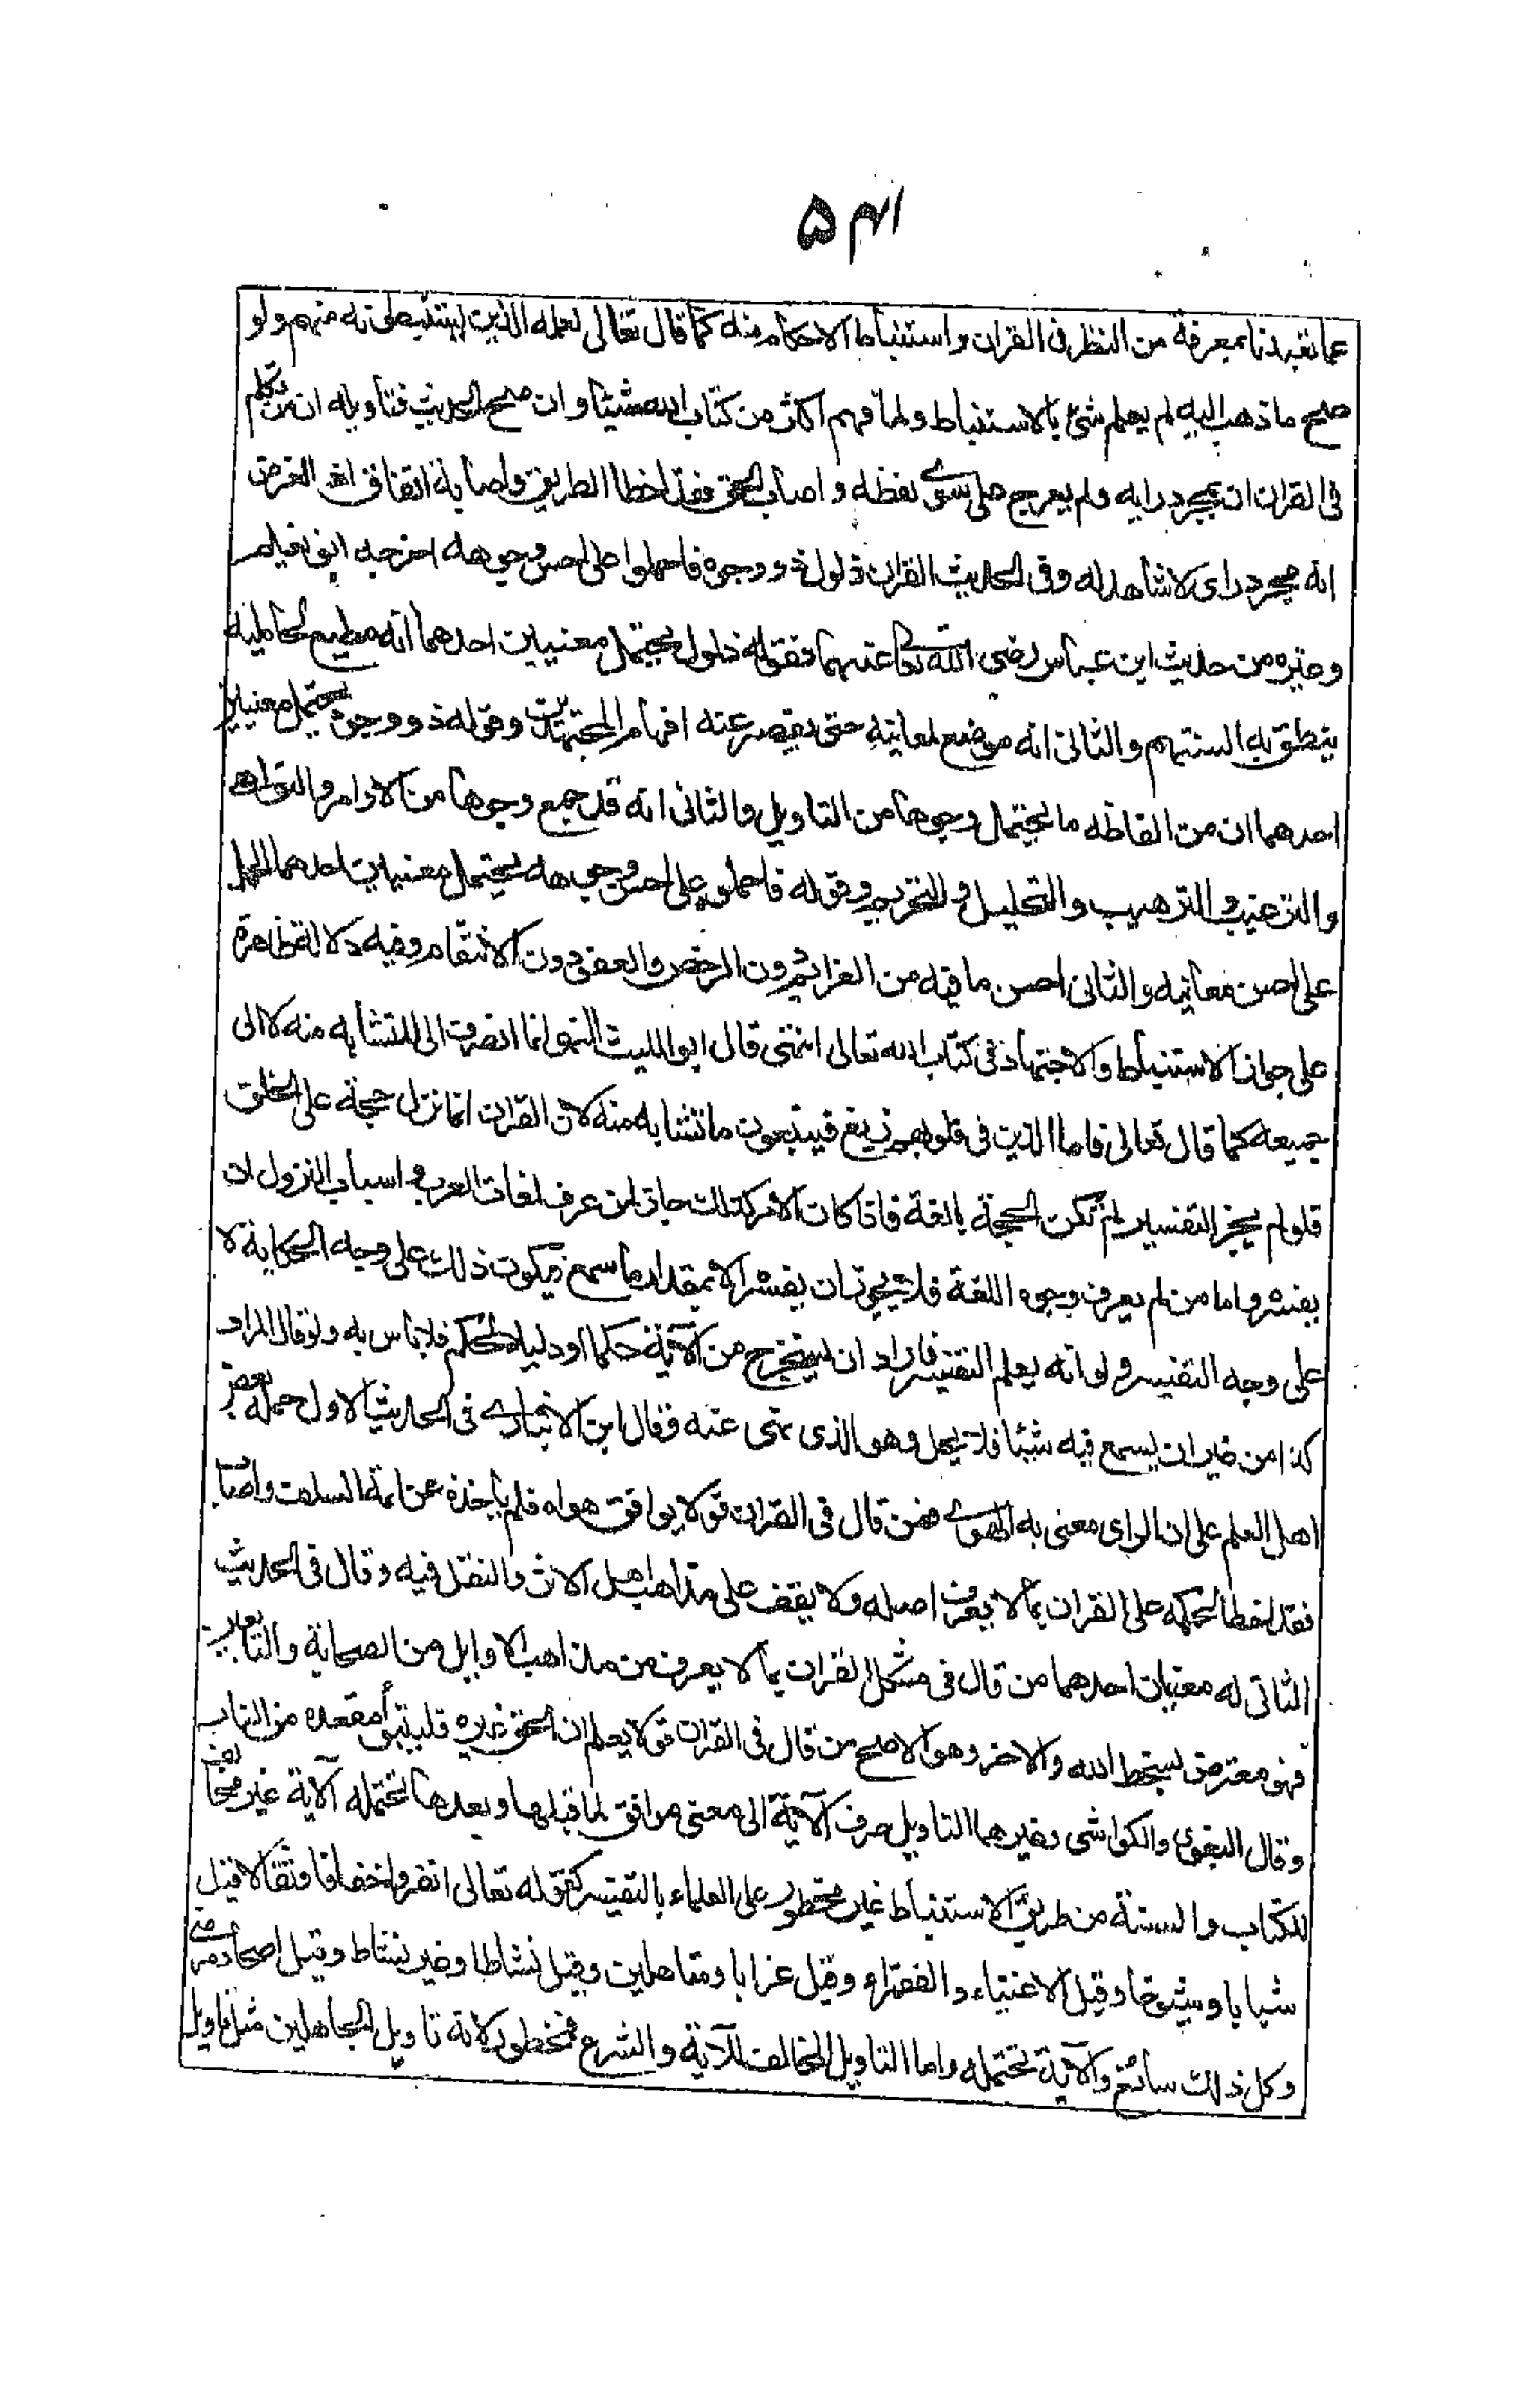 ۵۴۱
عما تعبدنا بمعرفة من النظر فى القران واستنباط الاحكام منه كما قال تعالى لعلمه الذين يستنبطونه منهم ولو
صح ما ذهب اليه لم يعلم شئ بالاستنباط ولما فهم اكثر من كتاب الله شيئا وان صح الحديث فتاويله ان من تكلم
فى القران ان بمجرد رايه ولم يعرج على سوى لفظه واصاب الحق فقد اخطا الطريق واصابة اتفاق اذ الغرض
انه مجرد راى لا شاهد له وفى الحديث القران ذلول ذو وجوه فاحملوا على احسن وجوهه اخرجه ابو نعيم
وغيره من حديث ابن عباس رضى الله تعا عنهما فقوله ذلول يحتمل معنيين احدهما انه مطيع لحامليه
ينطق به السنتهم والثانى انه موضع لمعانيه حتى يقصر عنه افهام المجتهدين وقوله ذو وجوه يحتمل معنيين
احدهما ان من الفاظه ما يحتمل وجوها من التاويل والثانى انه قد جمع وجوها من الاوامر والنواهى
والترغيب والترهيب والتحليل والتحريم وقوله فاحملوه على احسن وجوهه يحتمل معنيين احدهما الحمل
على احسن معانيه والثانى احسن ما فيه من العزائم دون الرخص والعفو دون الانتقام وفيه دلالة ظاهرة
على جواز الاستنباط والاجتهاد فى كتاب الله تعالى انتهى قال ابو الليث النهى انما انصرف الى المتشابه منه لا الى
جميعه كما قال تعالى فاما الذين فى قلوبهم زيغ فيتبعون ما تشابه منه لان القران انما نزل حجة على الخلق
فلو لم يجز التفسير لم تكن الحجة بالغة فاذا كان الامر كذلك جاز لمن عرف لغات العرب واسباب النزول ان
يفسره واما من لم يعرف وجوه اللغة فلا يجوز ان يفسر الا بمقدار ما سمع فيكون ذلك على وجه الحكاية لا
على وجه التفسير ولو انه يعلم التفسير فاراد ان يستخرج من الآية حكما او دليلا لحكم فلا باس به ولو قال المراد
كذا من غير ان يسمع فيه شيئا فلا يحل وهو الذى نهى عنه فقال ابن الانبارى فى الحديث الاول حمله بعض
اهل العلم على ان الراى معنى به الهوى فمن قال فى القران قولا يوافق هواه فلم ياخذه عن ائمة السلف واصاب
فقد اخطا لحكمه على القران بما لا يعرف اصله ولا يقف على مذاهب اهل الاثر والنقل فيه وقال فى الحديث
الثانى له معنيان احدهما من قال فى مشكل القران بما لا يعرف من مذاهب الاوايل من الصحابة والتابعين
فهو معترض لسخط الله والاخر وهو الاصح من قال فى القران قولا يعلم ان الحق غيره فليتبوأ مقعده من النار
وقال البغوى والكواشى وغيرهما التاويل صرف الآية الى معنى موافق لما قبلها وبعدها تحتمله الآية غير مخالف
للكتاب والسنة من طريق الاستنباط غير محظور على العلماء بالتفسير كقوله تعالى انفروا خفافا وثقالا قيل
شبابا وشيوخا وقيل الاغنياء والفقراء وقيل عزابا ومتاهلين وقيل نشاطا وغير نشاط وقيل اصحاء ومرضى
وكل ذلك سائغ والآية تحتمله واما التاويل المخالف للآية والشرع فمحظور لانه تاويل الجاهلين مثل تاويل